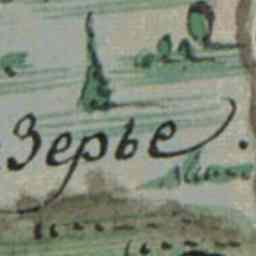 Зерье.